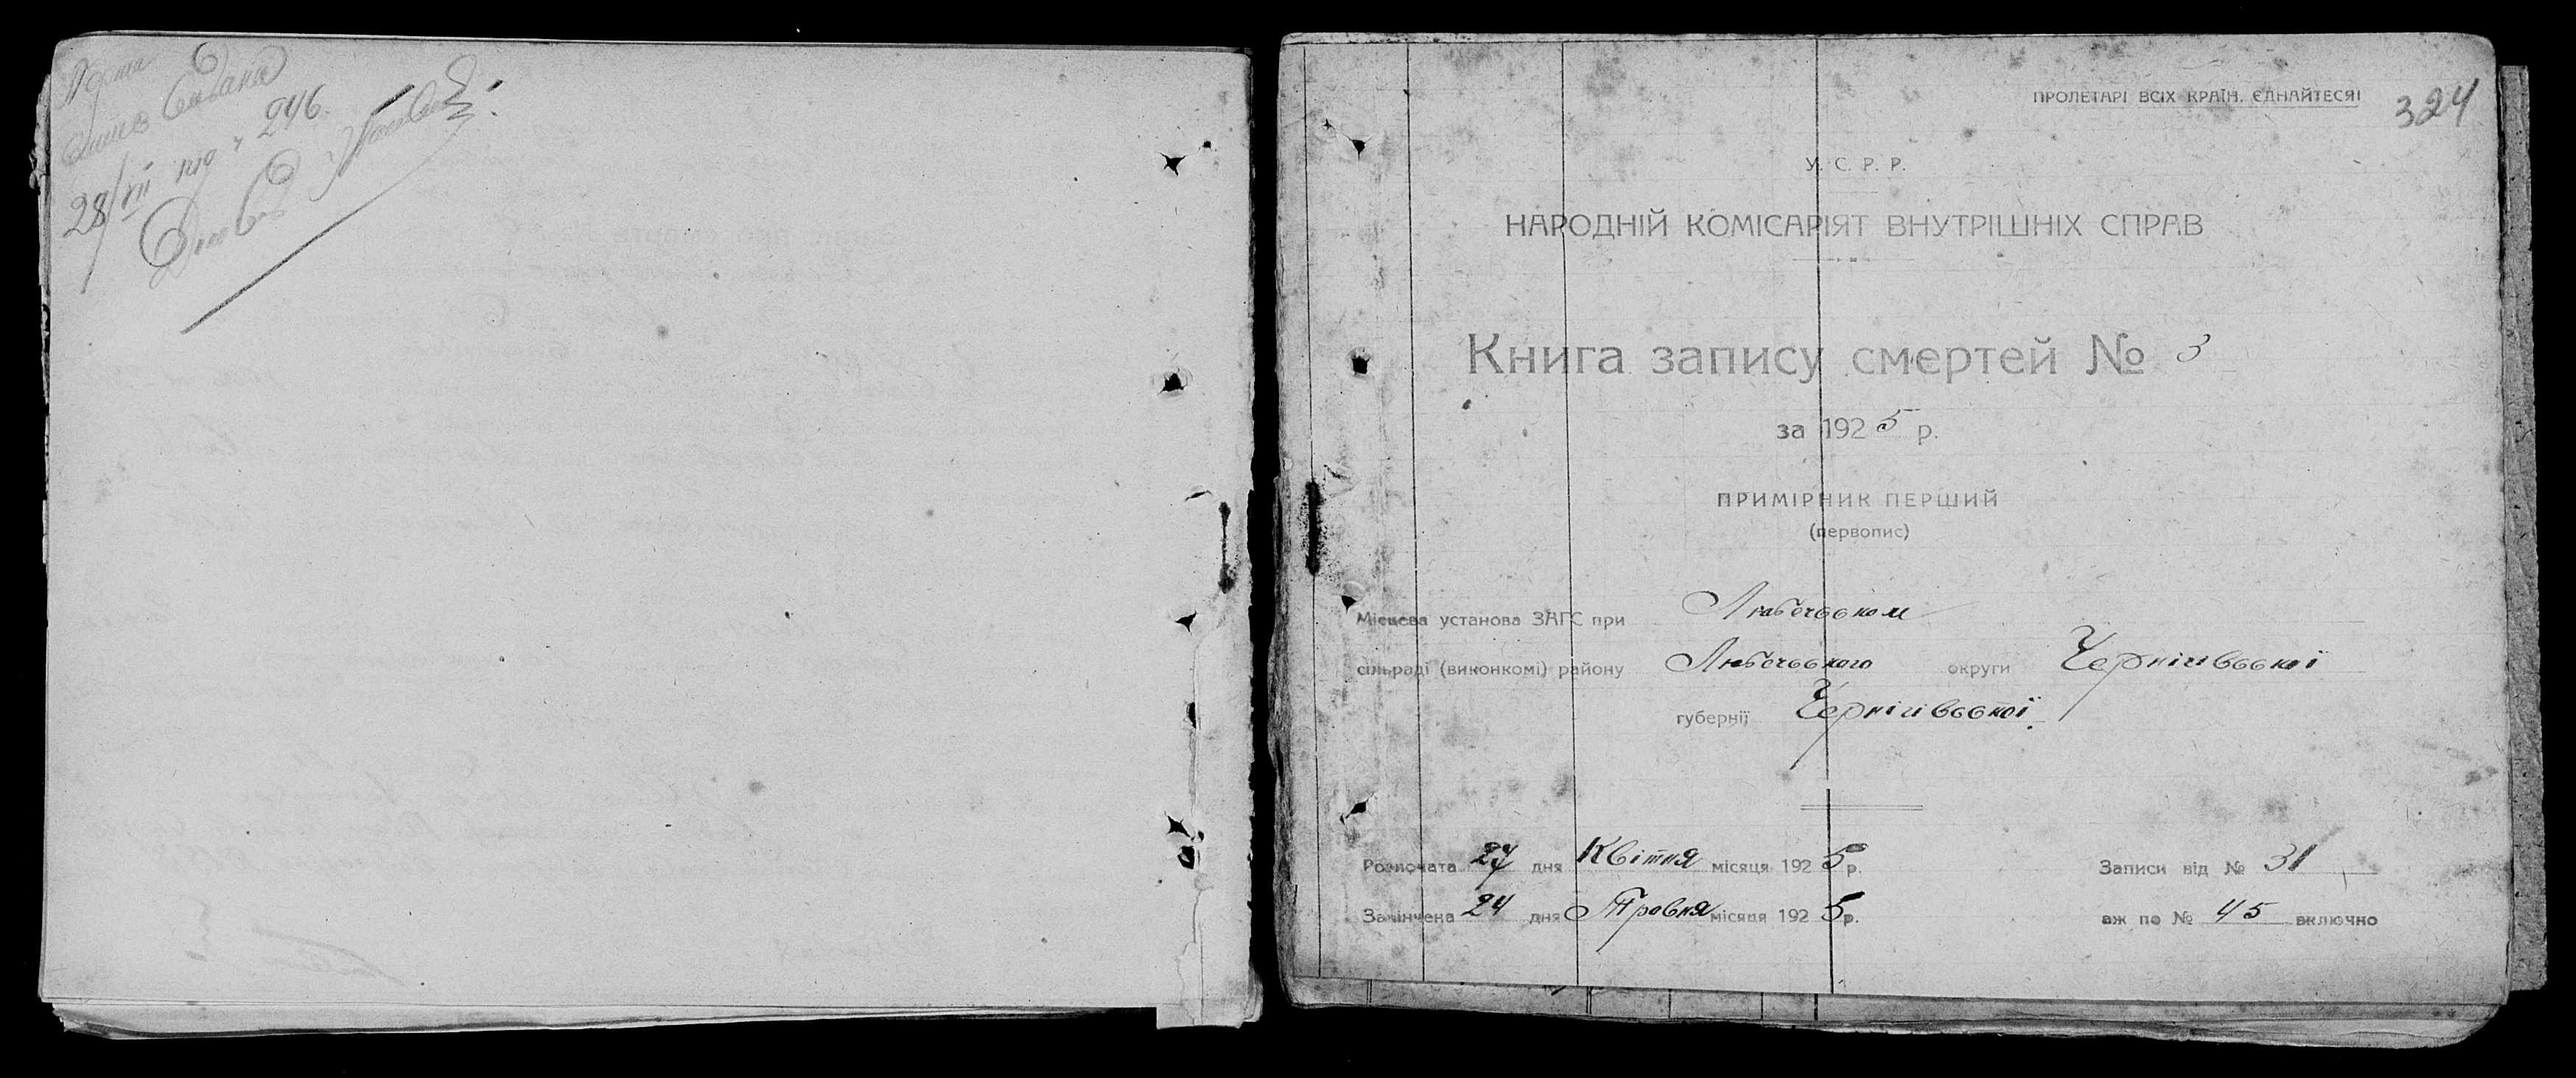 28/VII
246.
ПРОЛЕТАРІ ВСІХ КРАЇН, ЄДНАЙТЕСЯ!
324
У. С. Р. Р.
НАРОДНІЙ КОМІСАРІЯТ ВНУТРІШНІХ СПРАВ
Книга запису смертей № 3
за 1925 р.
ПРИМІРНИК ПЕРШИЙ
(первопис)
Місцева установа ЗАГС при Любечськом
сільраді (виконкомі) району Любечського округи Чернігівської
губернії Чернігівської.
Розпочата 27 дня Квітня місяця 1925 р. Записи від № 31
Закінчена 24 дня Травня місяця 1925 р. аж по № 45 включно